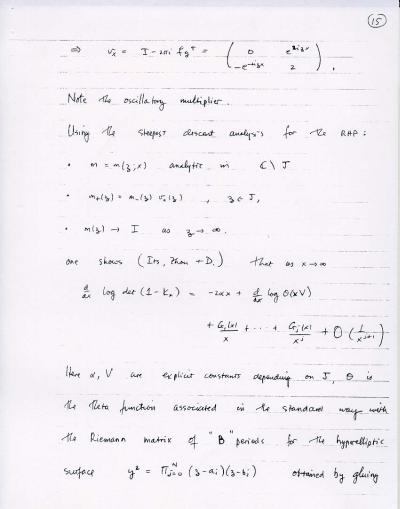 15
⇒ v_x = I - 2πi f g^T = ( 0 e^{2izx} ; -e^{-izx} 2 ) .
Note the oscillatory multiplier.
Using the steepest descent analysis for the RHP:
• m = m(z;x) analytic in ℂ \ J
• m_+(z) = m_-(z) v_x(z) , z ∈ J,
• m(z) → I as z → ∞.
one shows (Its, Zhou + D.) that as x → ∞
d/dx log det (1 - K_x) = -2αx + d/dx log Θ(xV)
+ G_1(x)/x + ··· + G_j(x)/x^j + O(1/x^{j+1})
Here α, V are explicit constants depending on J, Θ is
the theta function associated in the standard way with
the Riemann matrix of "B" periods for the hyperelliptic
surface y² = Π_{j=0}^N (z-a_i)(z-b_i) obtained by gluing